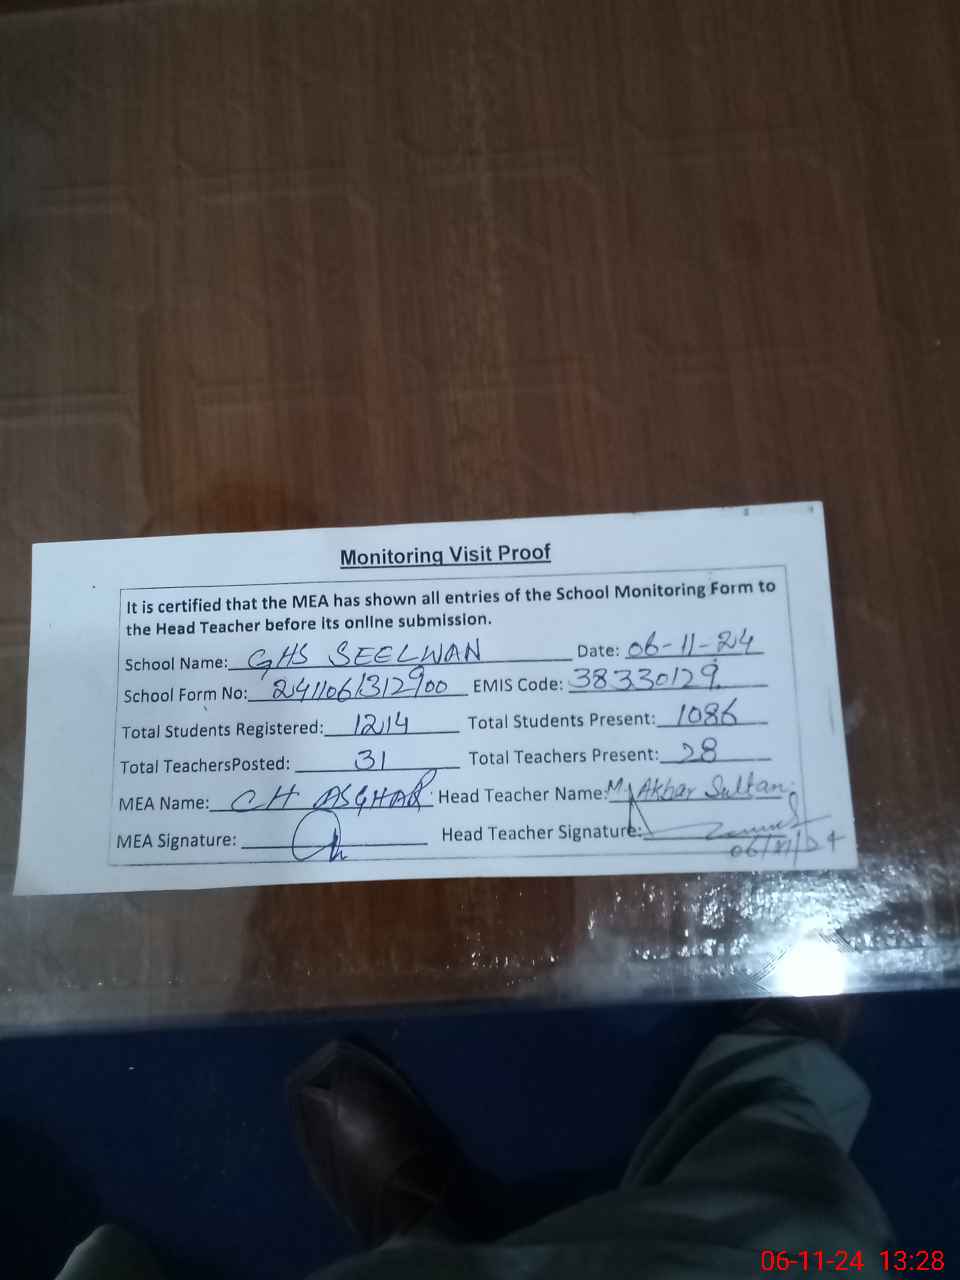 Monitoring Visit Proof
It is certified that the MEA has shown all entries of the School Monitoring Form to
the Head Teacher before its online submission.
School Name: GHS SEELWAN Date: 06-11-24
School Form No: 2411061312900 EMIS Code: 38330129
Total Students Registered: 1214 Total Students Present: 1086
Total TeachersPosted: 31 Total Teachers Present: 28
MEA Name: CH ASGHAR Head Teacher Name: M. Akbar Sultan
MEA Signature: Head Teacher Signature:
06/11/24
06-11-24 13:28